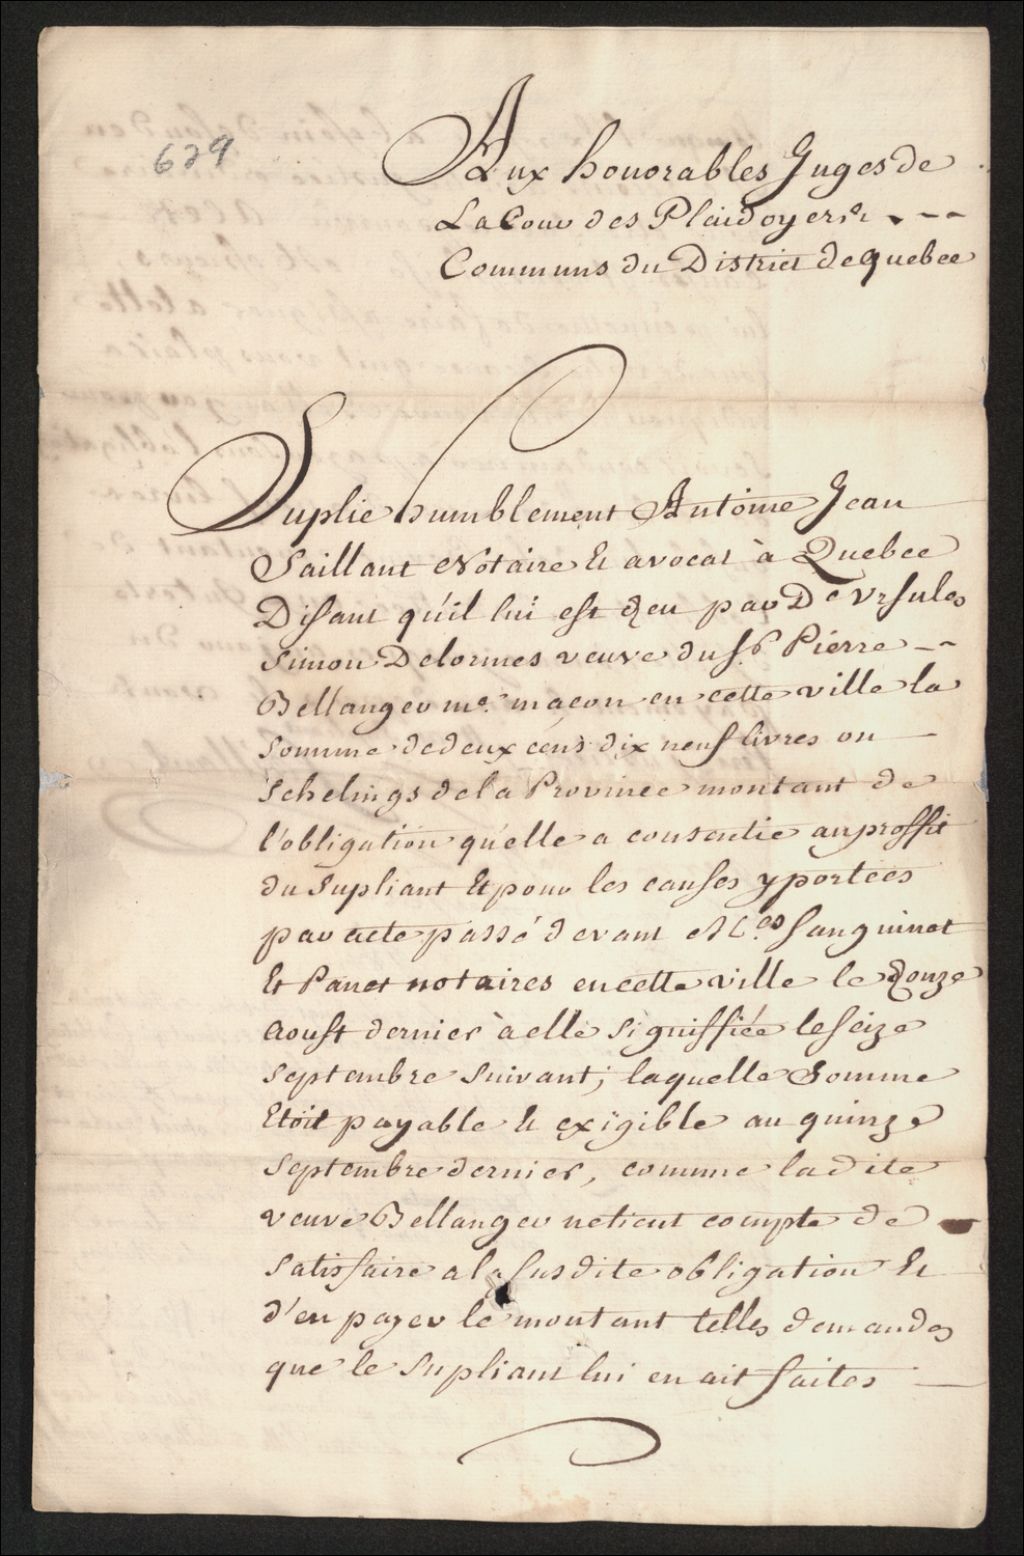 629
Aux honorables Juges de
La Cour des Plaidoyers
Communs du District de quebec
Suplie humblement Antoine Jean
Saillant Notaire & avocat à Quebec
Disant qu'il lui est deu par De Ursules
Simon Delormes veuve du Sr Pierre
Bellanger me. maçon en cette ville la
Somme de deux cens dix neuf livres ou
Schelings de la Province montant de
l'obligation quelle a consentie au proffit
du Supliant Et pour les causes y portées
par acte passé devant Mes. Sanguinet
Et Panet notaires en cette ville le douze
Aoust dernier à elle signiffiée le seize
Septembre Suivant; laquelle Somme
Etoit payable & exigible au quinze
Septembre dernier, comme ladite
veuve Bellanger ne tient compte de
Satisfaire a la Susdite obligation Et
d'en payer le montant telles demandes
que le Supliant lui en ait faites